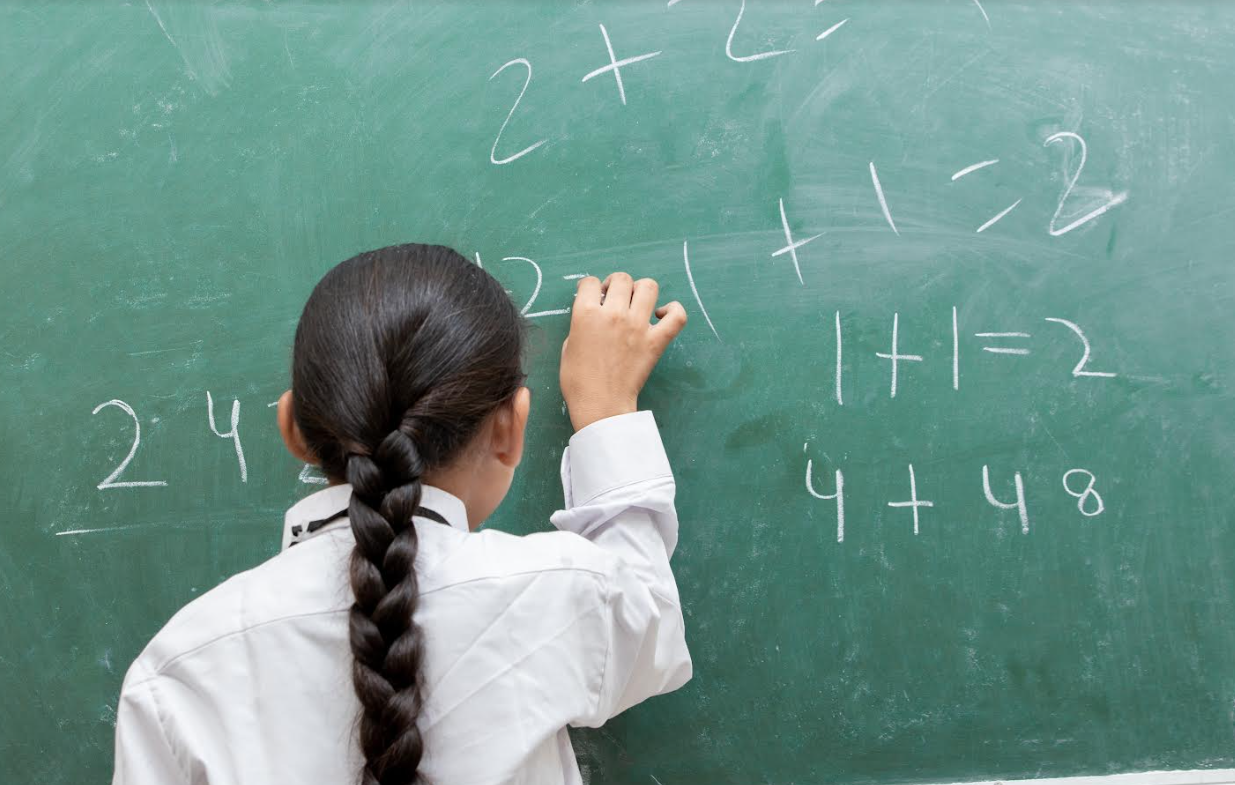 2 + 2 =
1 + 1 = 2
2 =
1 + 1 = 2
2 4
4 + 4 8